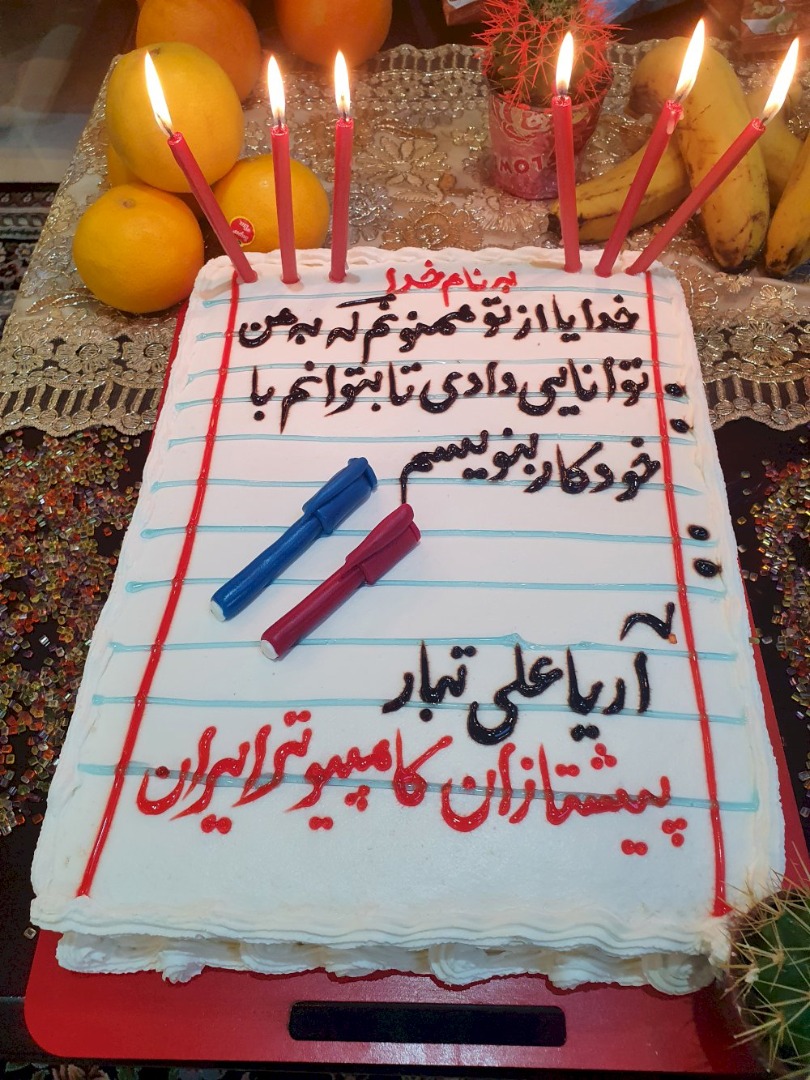 به نام خدا
خدایا از تو ممنونم که به من
توانایی دادی تا بتوانم با
خودکار بنویسم
آریا علی تبار
پیشتازان کامپیوتر ایران